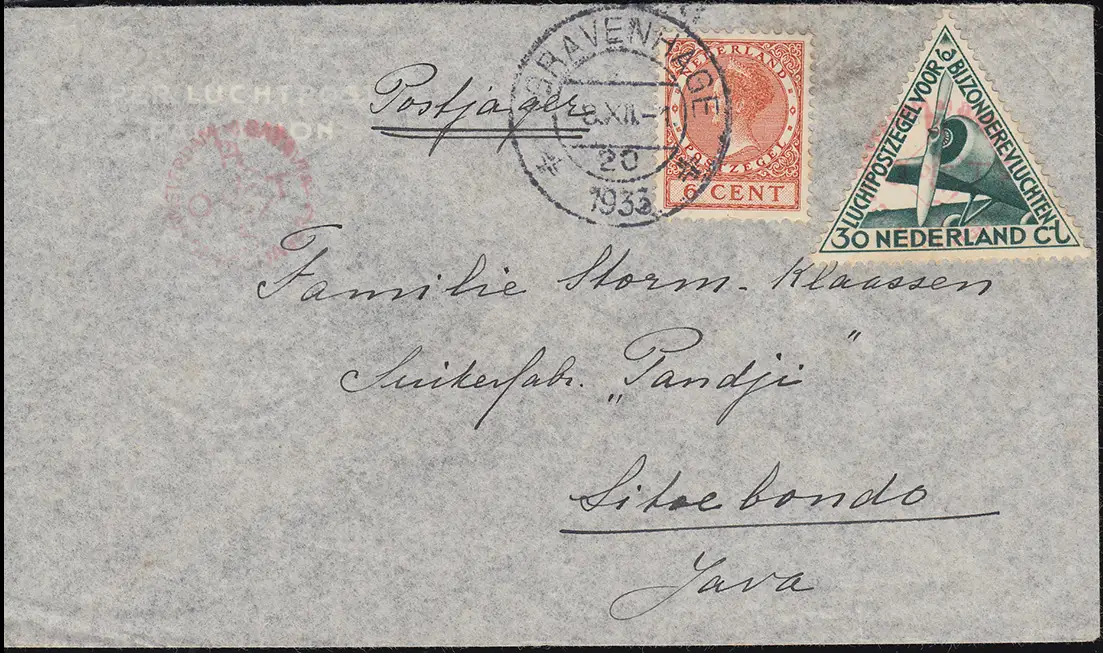 PER LUCHTPOST
PAR AVION
Postjager
'S GRAVENHAGE
8.XII.-1
20
1933
NEDERLAND
POSTZEGEL
6 CENT
LUCHTPOSTZEGEL VOOR
BIJZONDERE VLUCHTEN
30 NEDERLAND Ct
Familie Storm-Klaassen
Suikerfabr. „Pandji"
Sitoebondo
Java